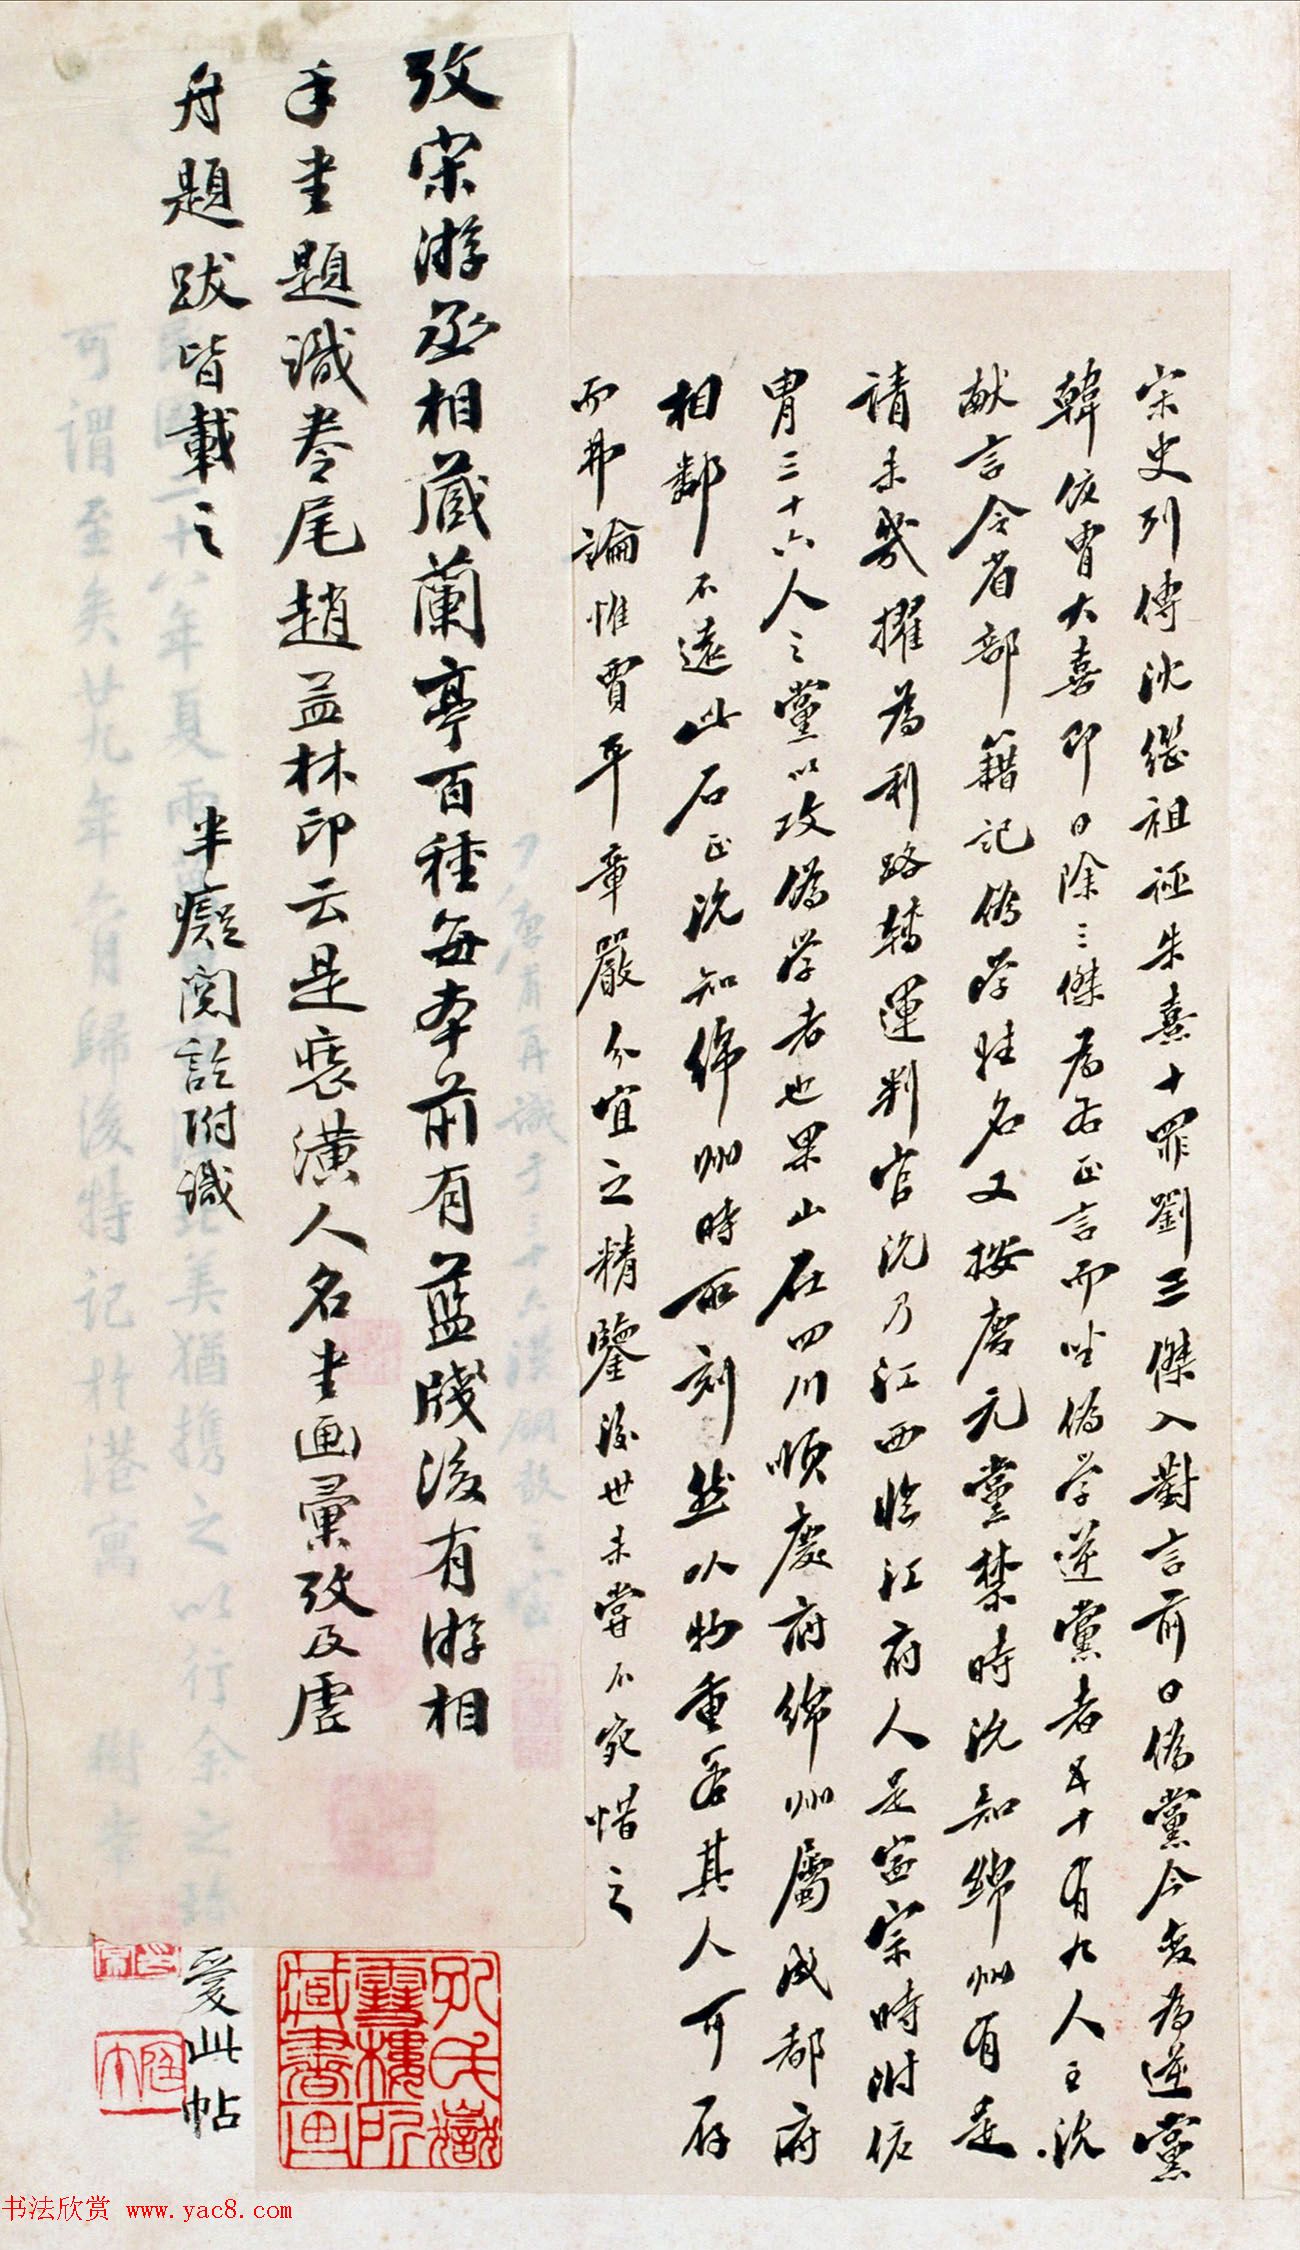 宋史列傳沈繼祖誣朱熹十罪劉三傑入對言前日偽黨今变為逆黨
韓侂胄大喜即日除三傑為右正言而坐偽学逆黨者五十有九人王沇
献言令省部籍記偽学姓名又按慶元黨禁時沇知綿州有是
請未幾擢為利路轉運判官沇乃江西臨江府人是寍宗時附侂
胄三十六人之黨以攻偽学者也果山在四川順慶府綿州屬成都府
相鄰不遠此石正沇知綿州時所刻然以物重若其人可存
而弗論惟賈平章嚴分宜之精鑒後世未嘗不宛惜之
攷宋游丞相蔵蘭亭百種每本前有藍牋後有游相
手書題識卷尾趙益林印云是裝潢人名書画彙攷及虛
舟題跋皆載之
半癡閱訖附識
愛此帖
可謂至矣廿九年六月歸後特記於港寓
孔氏嶽雪樓所藏書畫
书法欣赏 www.yac8.com